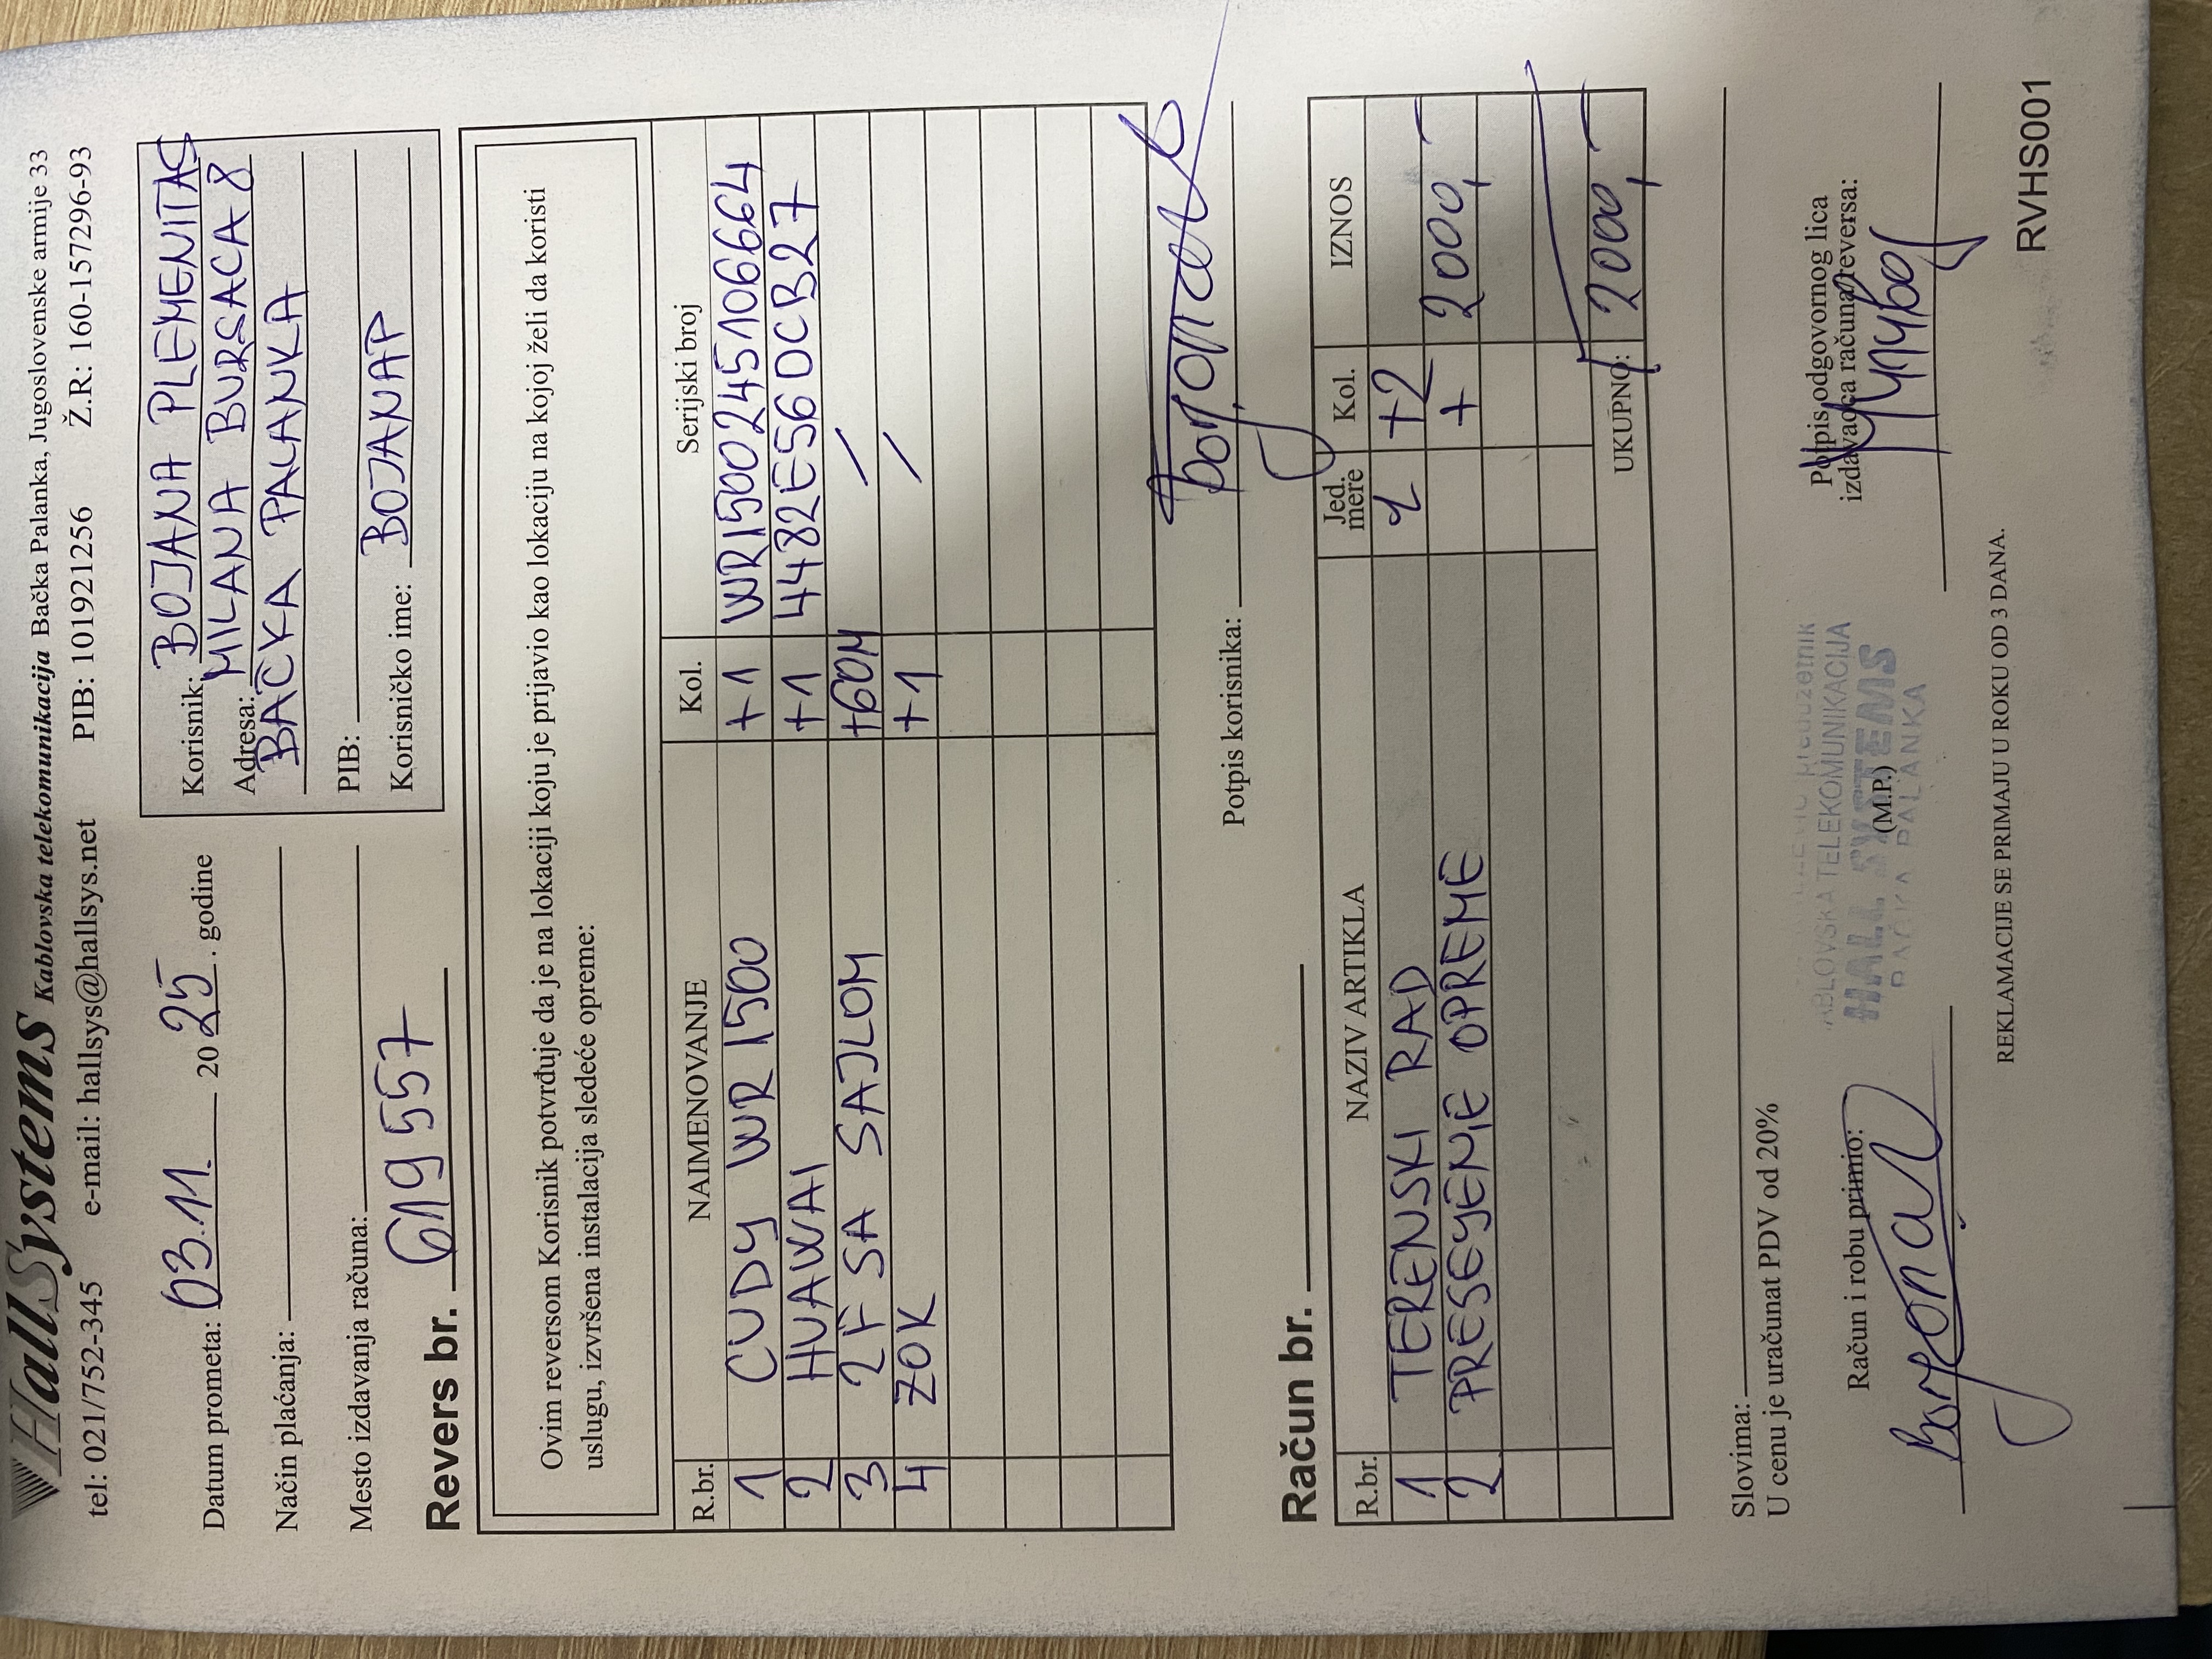 HallSystems Kablovska telekomunikacija Bačka Palanka, Jugoslovenske armije 33
tel: 021/752-345 e-mail: hallsys@hallsys.net PIB: 101921256 Ž.R: 160-157296-93
Datum prometa: 03.11. 2025. godine
Način plaćanja:
Mesto izdavanja računa:
Korisnik: BOJANA PLEMENITAS
Adresa: MILANA BURSAĆA 8
BAČKA PALANKA
PIB:
Korisničko ime: BOJANAP
Revers br. 619557
Ovim reversom Korisnik potvrđuje da je na lokaciji koju je prijavio kao lokaciju na kojoj želi da koristi
uslugu, izvršena instalacija sledeće opreme:
R.br. NAIMENOVANJE Kol. Serijski broj
1 CUDY WR1500 +1 WR1500245106664
2 HUAWAI +1 4482E560CB27
3 2F SA SAJLOM +60M /
4 ZOK +1 /
Potpis korisnika:
Račun br.
R.br. NAZIV ARTIKLA Jed. mere Kol. IZNOS
1 TERENSKI RAD +2
2 PRESEYENJE OPREME + 2000,-
UKUPNO: 2000,-
Slovima:
U cenu je uračunat PDV od 20%
Račun i robu primio:
KABLOVSKA TELEKOMUNIKACIJA
HALL SYSTEMS
BAČKA PALANKA
(M.P.)
Potpis odgovornog lica
izdavaoca računa/reversa:
REKLAMACIJE SE PRIMAJU U ROKU OD 3 DANA.
RVHS001